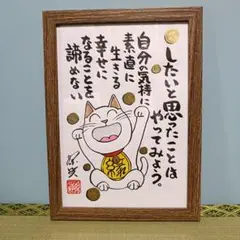 したいと思ったことは
やってみよう。
自分の気持に
素直に
生きる
幸せに
なることを
諦めない